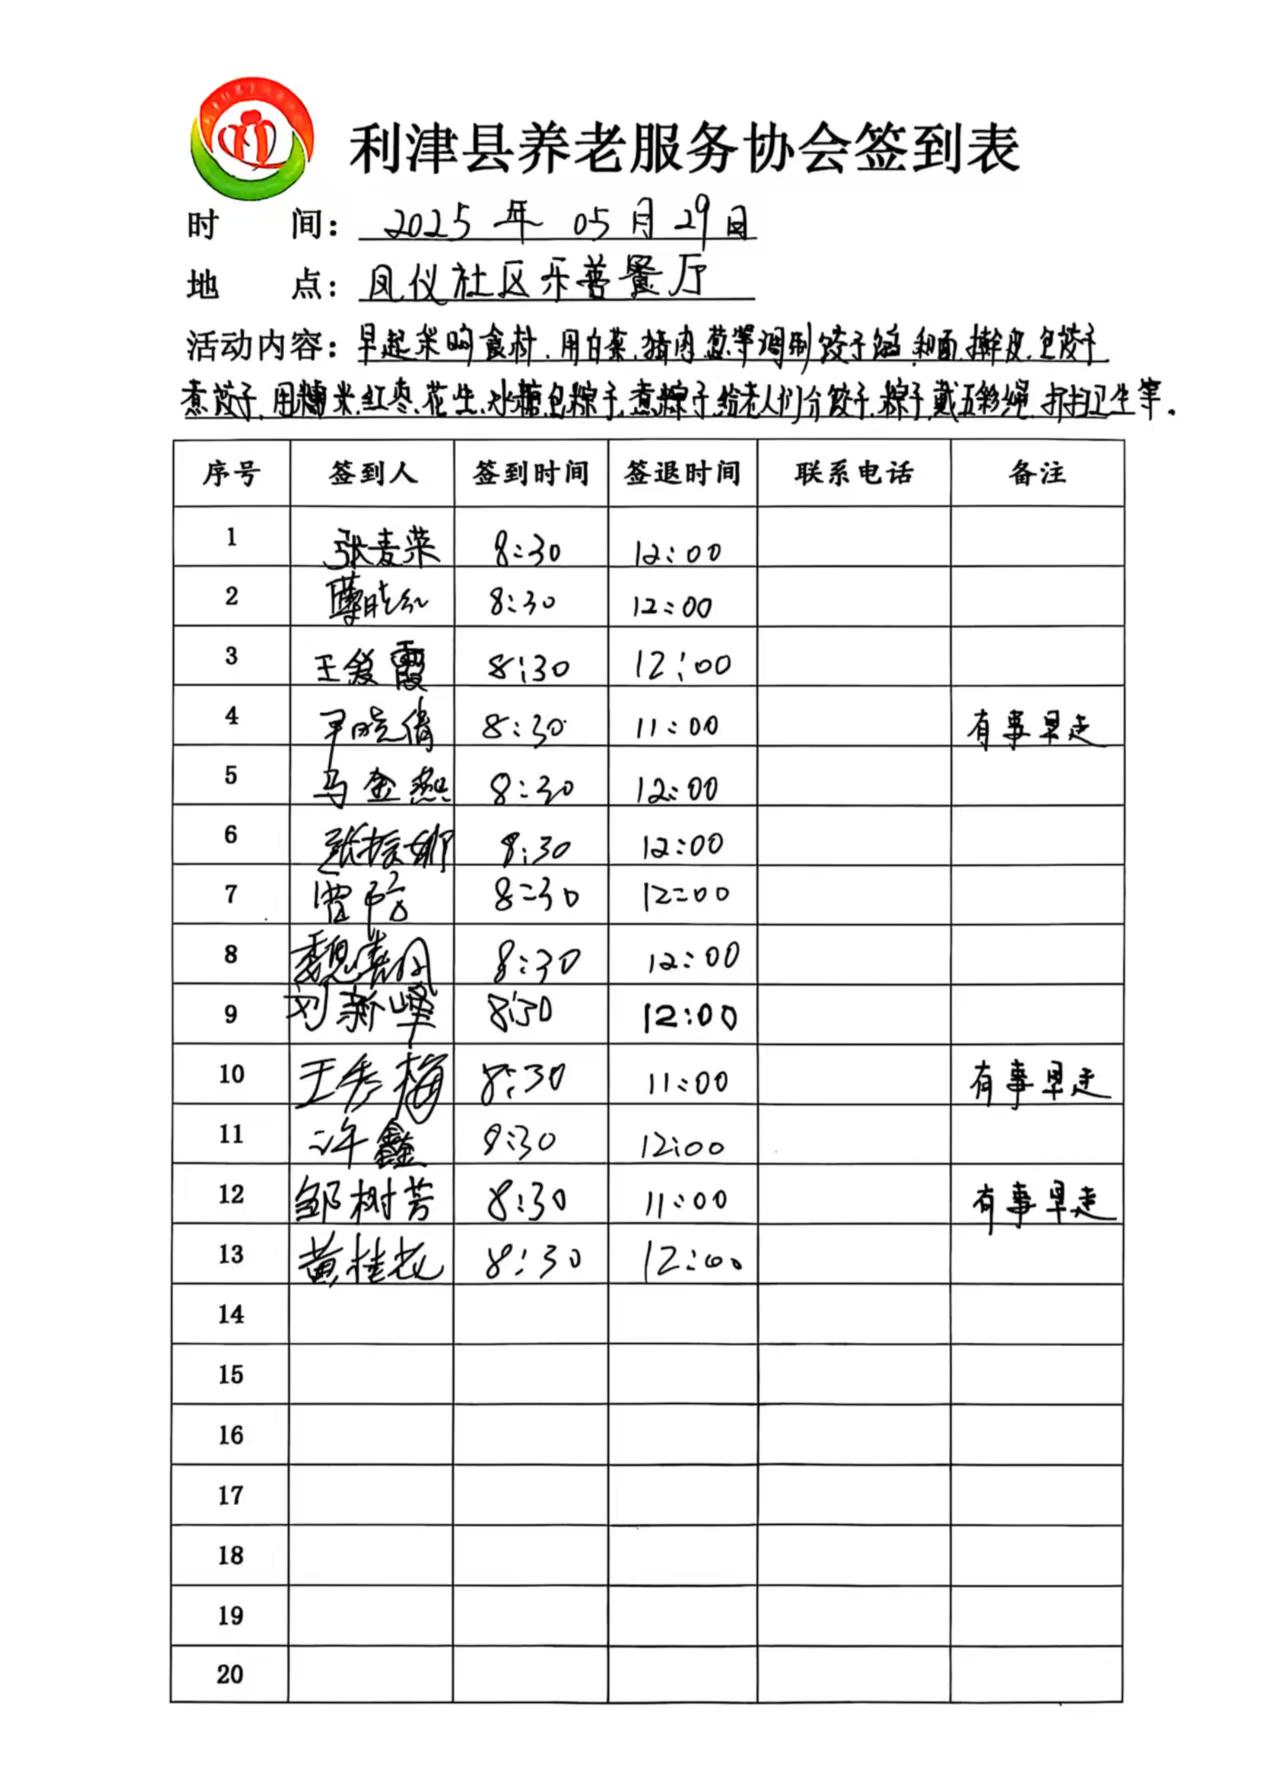 利津县养老服务协会签到表
时 间：2025年05月29日
地 点：凤仪社区乐善餐厅
活动内容：早起采购食材、用白菜、猪肉、葱等调制饺子馅、和面、擀皮、包饺子
煮饺子、用糯米、红枣、花生、冰糖包粽子、煮粽子、给老人们分饺子、粽子、戴五彩绳、打扫卫生等。
序号 签到人 签到时间 签退时间 联系电话 备注
1 张麦荣 8:30 12:00
2 薄晓红 8:30 12:00
3 王爱霞 8:30 12:00
4 晓倩 8:30 11:00 有事早走
5 马金燕 8:30 12:00
6 张振娜 8:30 12:00
7 8:30 12:00
8 魏 8:30 12:00
9 刘新峰 8:30 12:00
10 王秀梅 8:30 11:00 有事早走
11 许鑫 8:30 12:00
12 邹树芳 8:30 11:00 有事早走
13 黄桂花 8:30 12:00
14
15
16
17
18
19
20